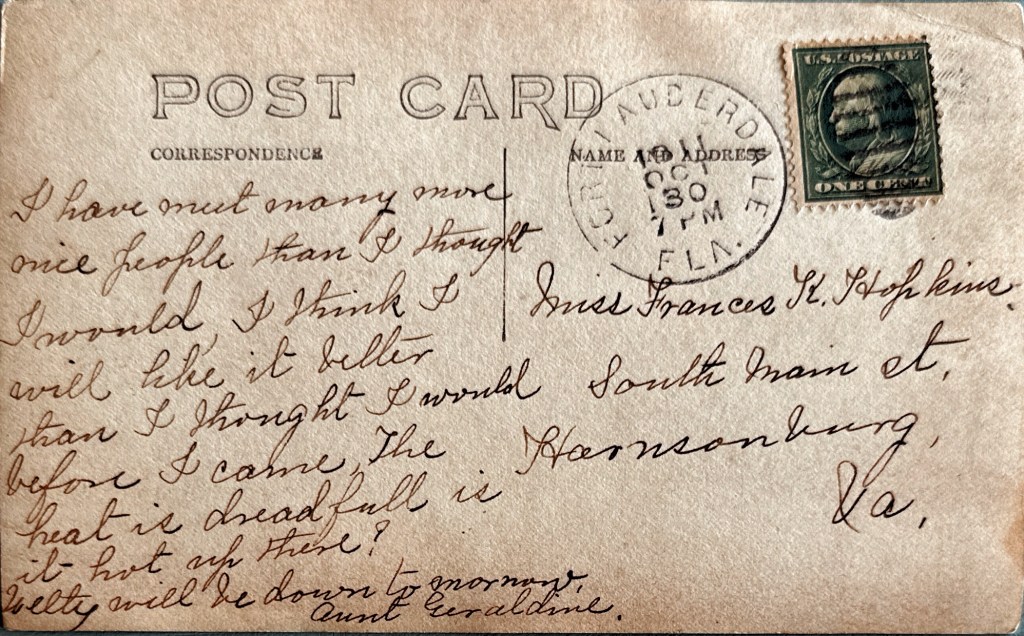 POST CARD
CORRESPONDENCE
NAME AND ADDRESS
FORT LAUDERDALE
1911
OCT
30
7 PM
FLA.
U.S. POSTAGE
ONE CENT
I have meet many more
nice people than I thought
I would, I think I
will like it better
than I thought I would
before I came, The
heat is dreadfull is
it hot up there?
will be down to mornow,
Aunt Geraldine.
Miss Frances K. Hopkins.
South Main st,
Harrisonburg,
Va,